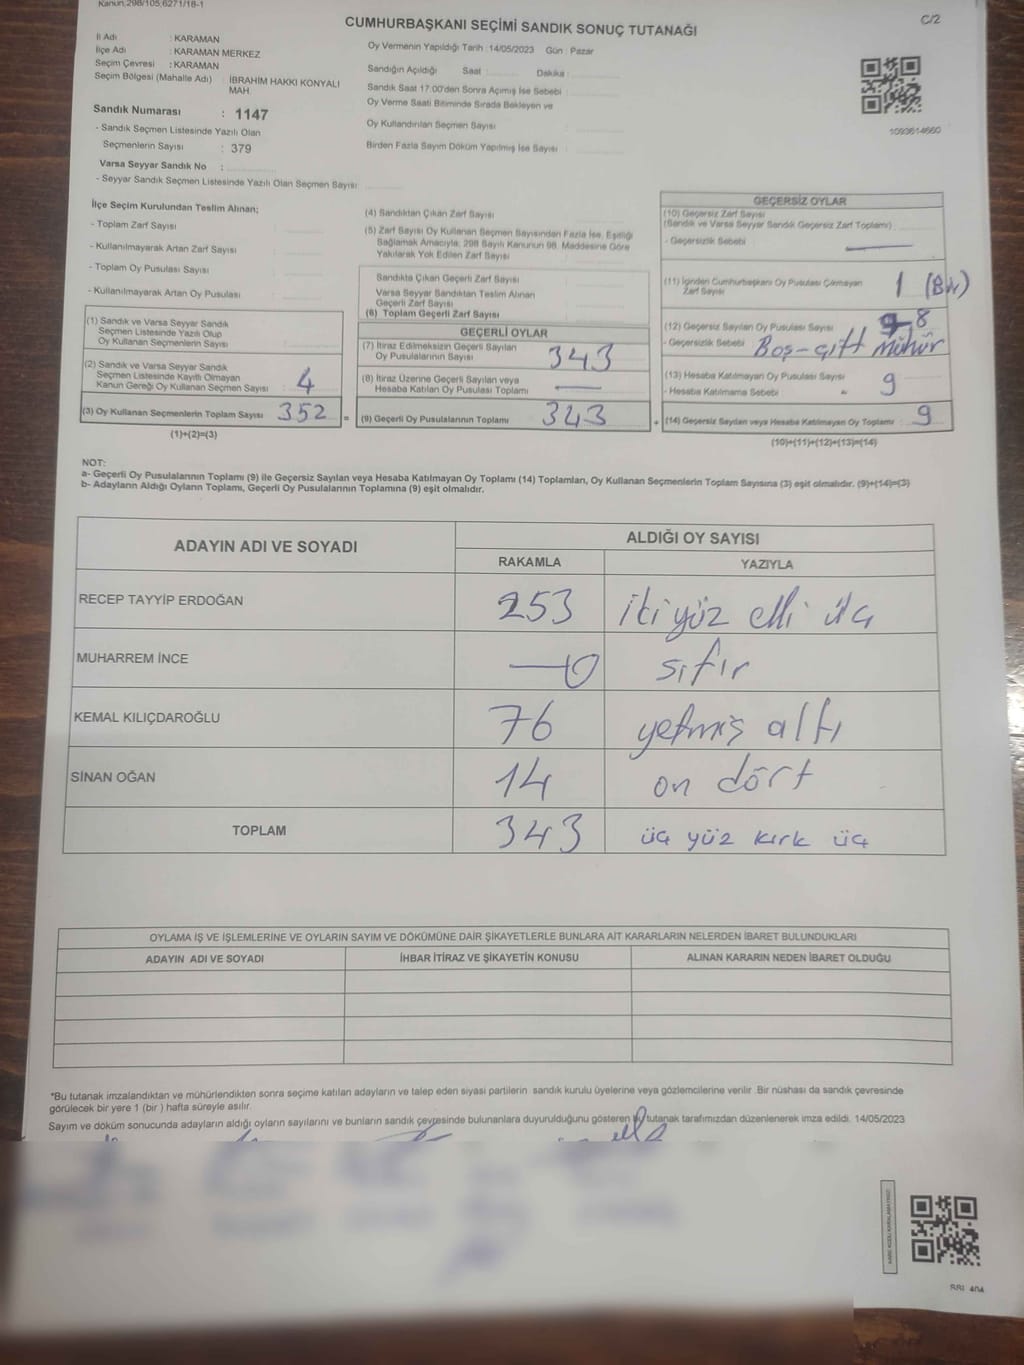 Kanun,298/105,6271/18-1
CUMHURBAŞKANI SEÇİMİ SANDIK SONUÇ TUTANAĞI
C/2
İl Adı : KARAMAN
İlçe Adı : KARAMAN MERKEZ
Seçim Çevresi : KARAMAN
Seçim Bölgesi (Mahalle Adı) : İBRAHİM HAKKI KONYALI
MAH.
Sandık Numarası : 1147
- Sandık Seçmen Listesinde Yazılı Olan
Seçmenlerin Sayısı : 379
Varsa Seyyar Sandık No :
- Seyyar Sandık Seçmen Listesinde Yazılı Olan Seçmen Sayısı
Oy Vermenin Yapıldığı Tarih :14/05/2023 Gün : Pazar
Sandığın Açıldığı Saat : Dakika :
Sandık Saat 17:00'den Sonra Açımış İse Sebebi :
Oy Verme Saati Bitiminde Sırada Bekleyen ve
Oy Kullandırılan Seçmen Sayısı :
Birden Fazla Sayım Döküm Yapılmış İse Sayısı :
1093614660
İlçe Seçim Kurulundan Teslim Alınan;
- Toplam Zarf Sayısı
- Kullanılmayarak Artan Zarf Sayısı
- Toplam Oy Pusulası Sayısı
- Kullanılmayarak Artan Oy Pusulası
(1) Sandık ve Varsa Seyyar Sandık
Seçmen Listesinde Yazılı Olup
Oy Kullanan Seçmenlerin Sayısı
(2) Sandık ve Varsa Seyyar Sandık
Seçmen Listesinde Kayıtlı Olmayan
Kanun Gereği Oy Kullanan Seçmen Sayısı : 4
(3) Oy Kullanan Seçmenlerin Toplam Sayısı : 352 =
(1)+(2)=(3)
(4) Sandıktan Çıkan Zarf Sayısı
(5) Zarf Sayısı Oy Kullanan Seçmen Sayısından Fazla İse, Eşitliği
Sağlamak Amacıyla; 298 Sayılı Kanunun 98. Maddesine Göre
Yakılarak Yok Edilen Zarf Sayısı
Sandıkta Çıkan Geçerli Zarf Sayısı
Varsa Seyyar Sandıktan Teslim Alınan
Geçerli Zarf Sayısı
(6) Toplam Geçerli Zarf Sayısı
GEÇERLİ OYLAR
(7) İtiraz Edilmeksizin Geçerli Sayılan
Oy Pusulalarının Sayısı 343
(8) İtiraz Üzerine Geçerli Sayılan veya
Hesaba Katılan Oy Pusulası Toplamı —
(9) Geçerli Oy Pusulalarının Toplamı : 343 +
GEÇERSİZ OYLAR
(10) Geçersiz Zarf Sayısı
(Sandık ve Varsa Seyyar Sandık Geçersiz Zarf Toplamı)
- Geçersizlik Sebebi —
(11) İçinden Cumhurbaşkanı Oy Pusulası Çıkmayan
Zarf Sayısı 1 (Bir)
(12) Geçersiz Sayılan Oy Pusulası Sayısı 8
- Geçersizlik Sebebi : Boş-çift mühür
(13) Hesaba Katılmayan Oy Pusulası Sayısı 9
- Hesaba Katılmama Sebebi
(14) Geçersiz Sayılan veya Hesaba Katılmayan Oy Toplamı : 9
(10)+(11)+(12)+(13)=(14)
NOT:
a- Geçerli Oy Pusulalarının Toplamı (9) ile Geçersiz Sayılan veya Hesaba Katılmayan Oy Toplamı (14) Toplamları, Oy Kullanan Seçmenlerin Toplam Sayısına (3) eşit olmalıdır. (9)+(14)=(3)
b- Adayların Aldığı Oyların Toplamı, Geçerli Oy Pusulalarının Toplamına (9) eşit olmalıdır.
ADAYIN ADI VE SOYADI
ALDIĞI OY SAYISI
RAKAMLA YAZIYLA
RECEP TAYYİP ERDOĞAN 253 ikiyüz elli üç
MUHARREM İNCE —0 sıfır
KEMAL KILIÇDAROĞLU 76 yetmiş altı
SİNAN OĞAN 14 on dört
TOPLAM 343 üç yüz kırk üç
OYLAMA İŞ VE İŞLEMLERİNE VE OYLARIN SAYIM VE DÖKÜMÜNE DAİR ŞİKAYETLERLE BUNLARA AİT KARARLARIN NELERDEN İBARET BULUNDUKLARI
ADAYIN ADI VE SOYADI İHBAR İTİRAZ VE ŞİKAYETİN KONUSU ALINAN KARARIN NEDEN İBARET OLDUĞU
*Bu tutanak imzalandıktan ve mühürlendikten sonra seçime katılan adayların ve talep eden siyasi partilerin sandık kurulu üyelerine veya gözlemcilerine verilir. Bir nüshası da sandık çevresinde
görülecek bir yere 1 (bir ) hafta süreyle asılır.
Sayım ve döküm sonucunda adayların aldığı oyların sayılarını ve bunların sandık çevresinde bulunanlara duyurulduğunu gösteren bu tutanak tarafımızdan düzenlenerek imza edildi. 14/05/2023